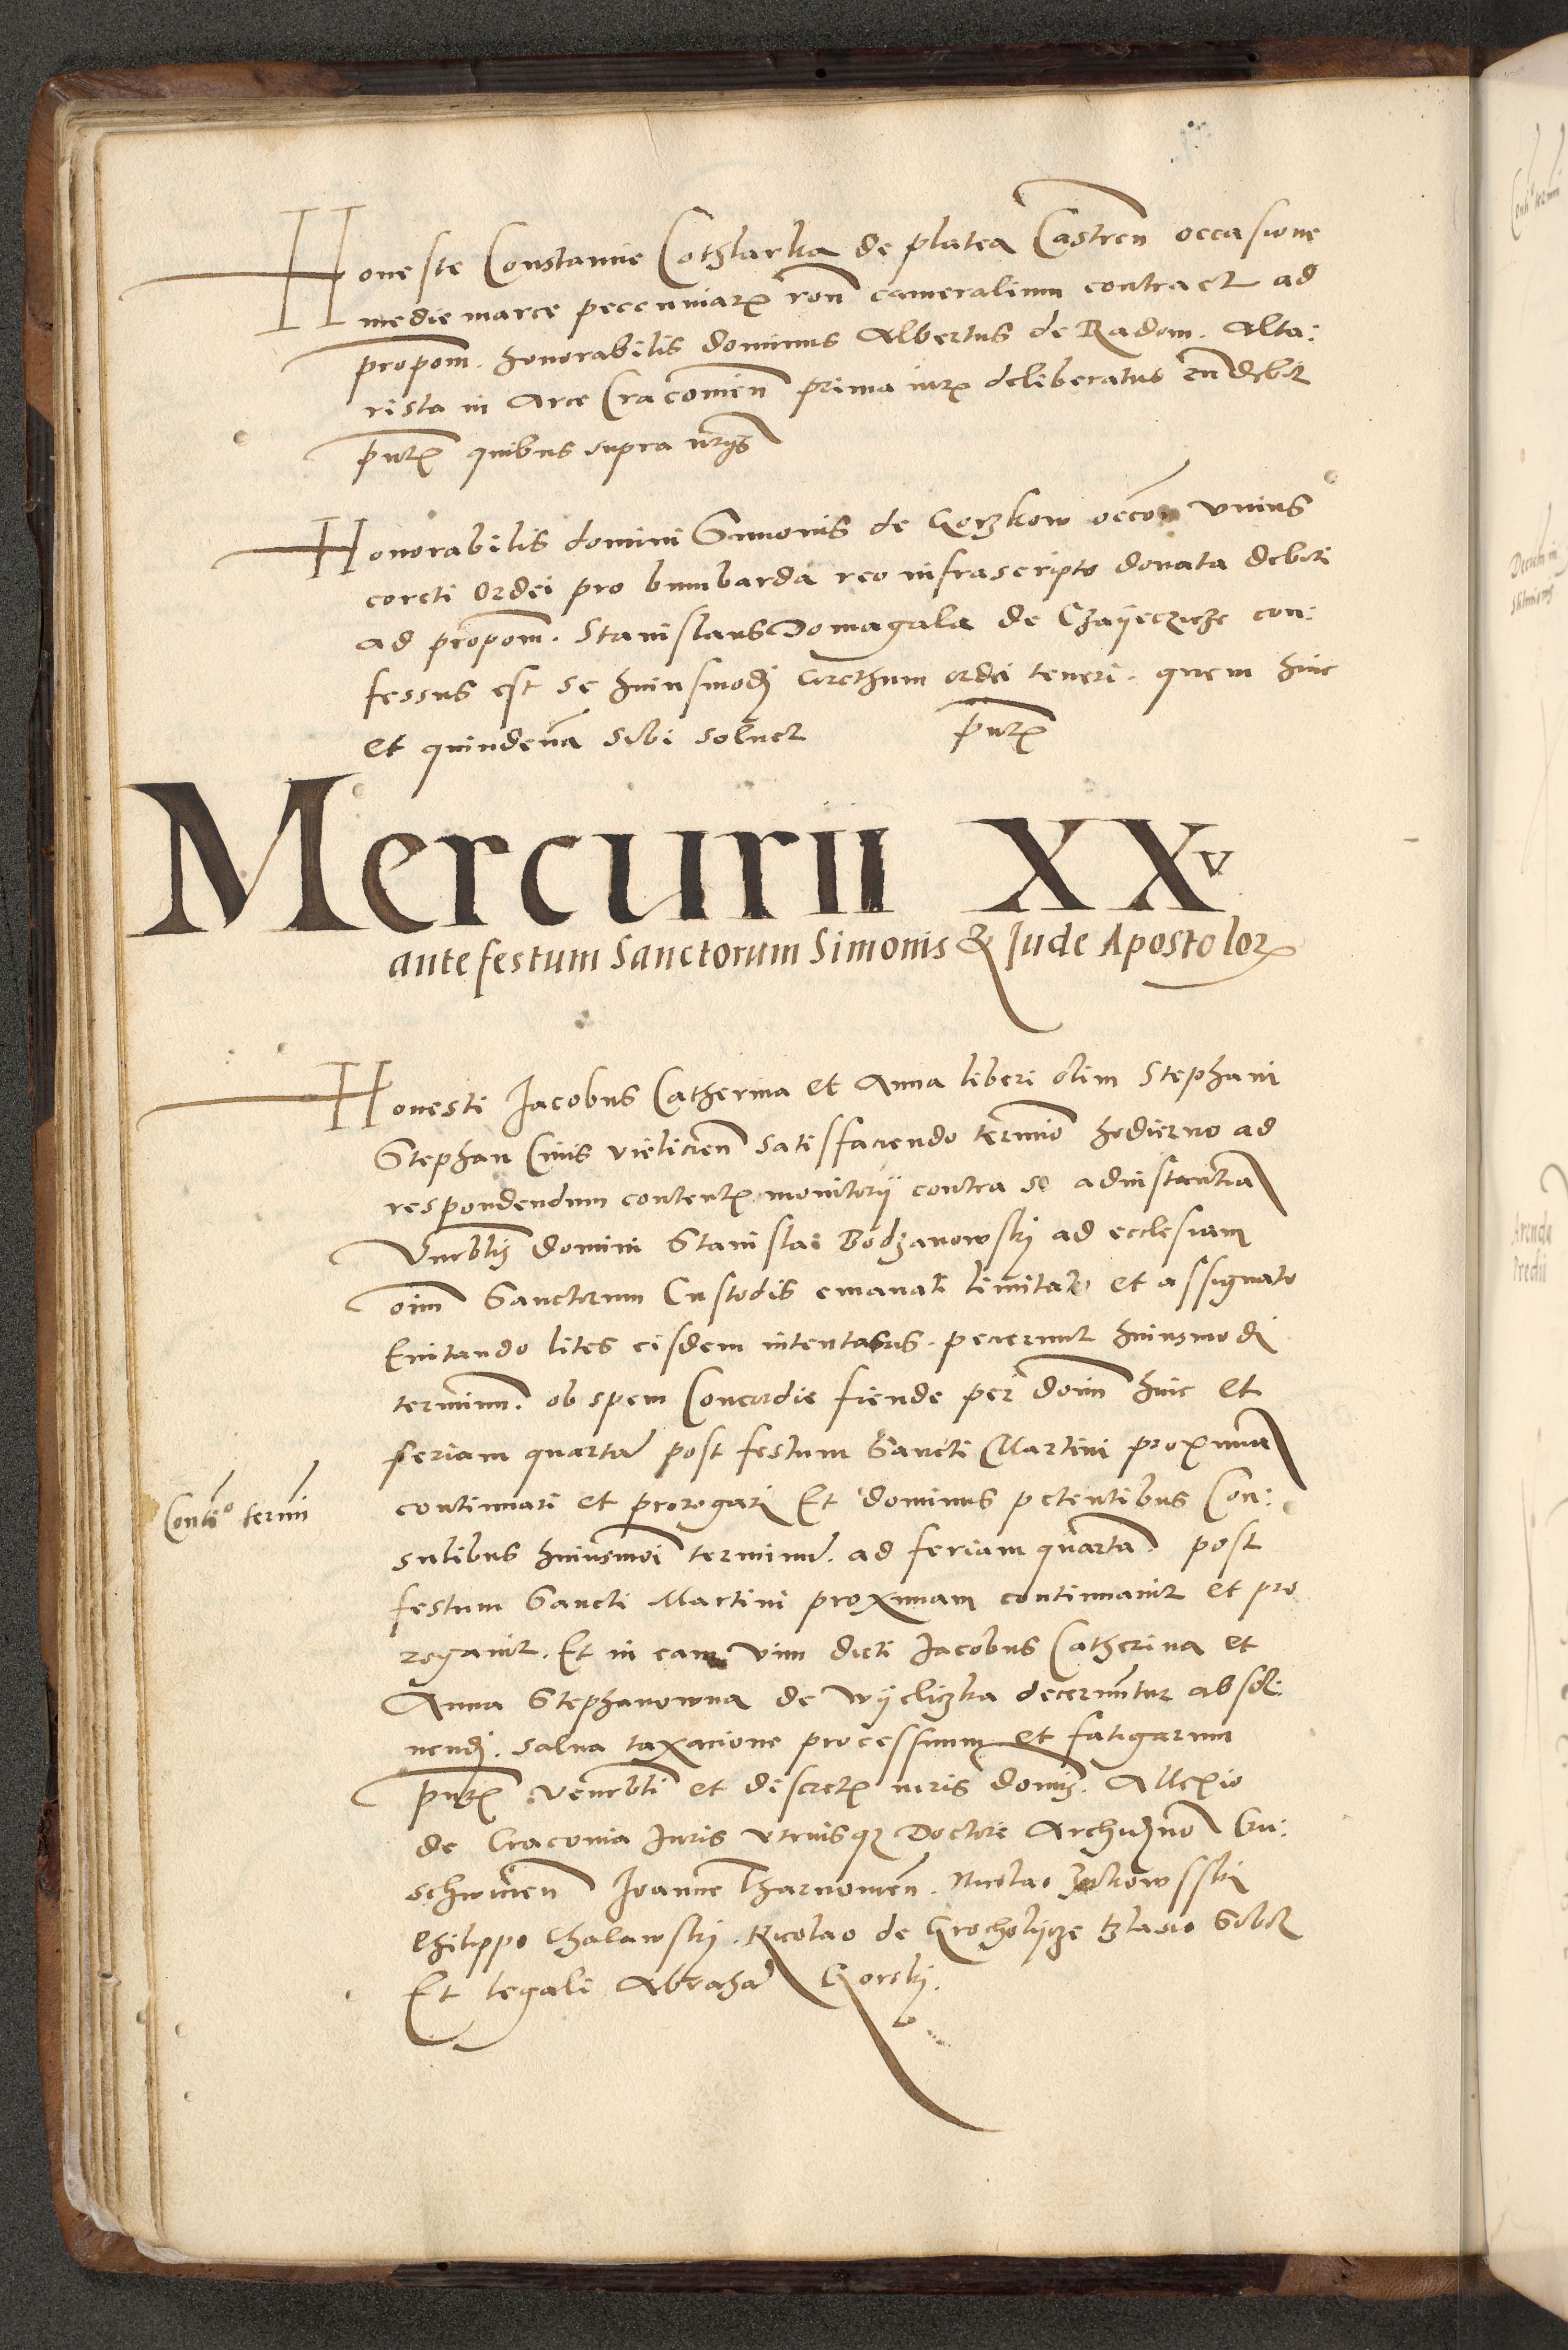 Honeste Constancie Cothlarka de platea Castren occasione
medie marce pecuniarꝫ ron cameralium contract ad
propom. honorabilis dominus Albertus de Radom. Alta:
rista in Arce Cracovien prima iurꝫ deliberatus rndebit
pntꝫ quibus supra
Honorabilis domini Simonis de Gorzkow occon unius
coreti Ordei pro bumbarda reo infrascripto donata debiti
ad propom. Stanislaus Domagala de Czayeczicze con:
fessus est se huiusmodi Corethum ordei teneri. quem hinc
et quindena sibi soluet pntꝫ
Mercurii XXv
ante festum Sanctorum Simonis & Jude Apostolorꝫ
Honesti Jacobus Catherina et Anna liberi olim Stephani
Stephan Civis vielicien satisfaciendo termino hodierno ad
respondendum contentꝫ monitorii contra se ad instantia
Vnerblis domini Stanislai Bodzanowski ad ecclesiam
oim Sanctorum Custodis emanati limitato et assignato
Evitando lites eisdem intentatas. pecierunt huiusmodi
terminum. ob spem Concordie fiende per doim hinc et
feriam quarta post festum Sancti Martini proxima
continuari et prorogari Et dominus petentibus Con:
sulibus huiusmoi terminu. ad feriam quarta. post
festum Sancti Martini proximam continuavit et pro
rogavit. Et in eam vim dicti Jacobus Catherina et
Anna Stephanowna de Wyeliczka decernuntur absol:
vendi. salva taxacione processuum et fatigarum
pntꝫ. venerbli et discretꝫ viris domis. Allexio
de Cracovia Juris utriusqꝫ Doctore Archidno Gu:
schovien Joanne Tharnovien. Nicolao
Philippo Chalawski. Nicolao de Grocholycze Blasio
Et legali Abraha Gorski.
Contio termi